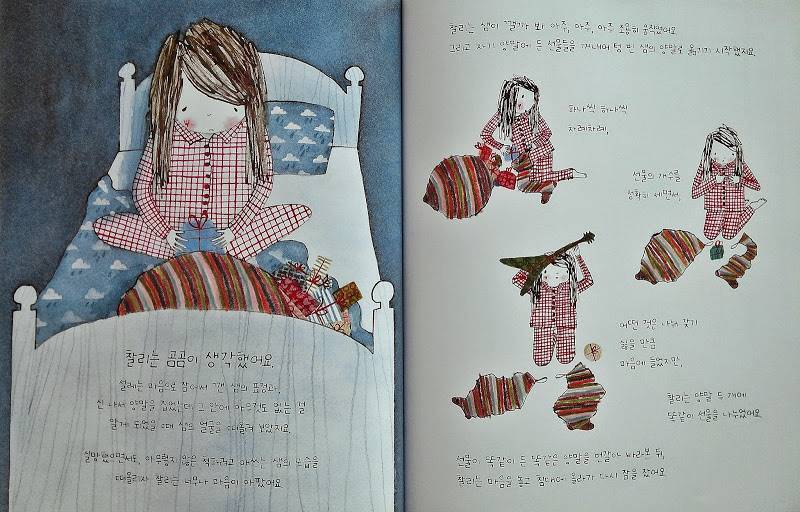 찰리는 곰곰이 생각했어요.
설레는 마음으로 잠에서 깬 샘의 표정과,
신 나서 양말을 집었는데 그 안에 아무것도 없는 걸
알게 되었을 때 샘의 얼굴을 떠올려 보았지요.
실망했으면서도, 아무렇지 않은 척하려고 애쓰는 샘의 모습을
떠올리자 찰리는 너무나 마음이 아팠어요.
찰리는 샘이 깰까 봐 아주, 아주, 아주 조용히 움직였어요.
그리고 자기 양말에 든 선물들을 꺼내어 텅 빈 샘의 양말로 옮기기 시작했지요.
하나씩 하나씩
차례차례,
선물의 개수를
정확히 세면서,
어떤 것은 나눠 갖기
싫을 만큼
마음에 들었지만,
찰리는 양말 두 개에
똑같이 선물을 나누었어요.
선물이 똑같이 든 똑같은 양말을 번갈아 바라본 뒤,
찰리는 마음을 놓고 침대에 올라가 다시 잠을 잤어요.